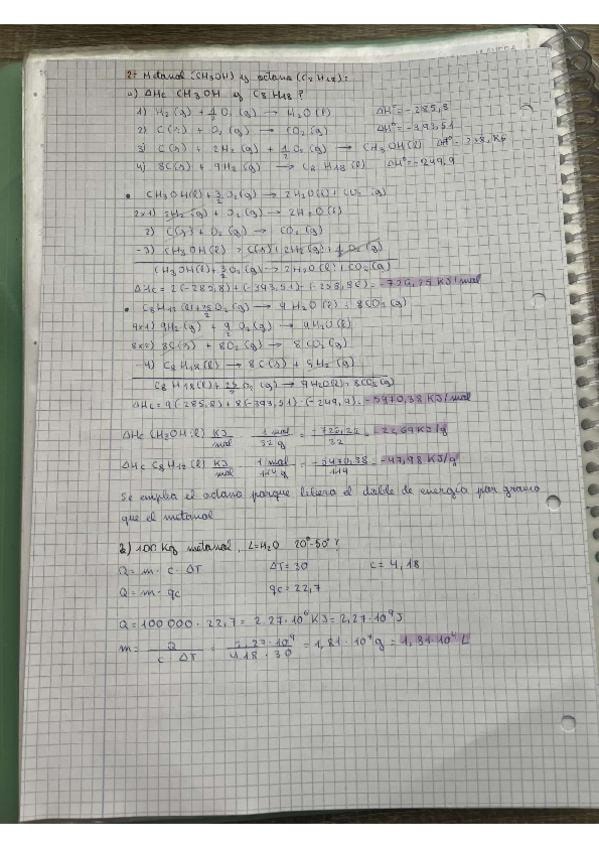 2- Metanol (CH3OH) y octano (C8H18):
a) ΔHc CH3OH y C8H18?
1) H2(g) + 1/2 O2(g) → H2O(l) ΔH° = -285,8
2) C(s) + O2(g) → CO2(g) ΔH° = -393,51
3) C(s) + 2H2(g) + 1/2 O2(g) → CH3OH(l) ΔH°=
4) 8C(s) + 9H2(g) → C8H18(l) ΔH°=-249,9
• CH3OH(l) + 3/2 O2(g) → 2H2O(l) + CO2(g)
2x1) 2H2(g) + O2(g) → 2H2O(l)
2) C(s) + O2(g) → CO2(g)
-3) CH3OH(l) → C(s) + 2H2(g) + 1/2 O2(g)
CH3OH(l) + 3/2 O2(g) → 2H2O(l) + CO2(g)
ΔHc = 2(-285,8) + (-393,51) - = KJ/mol
• O2(g) → 9H2O(l) + 8CO2(g)
9x1) 9H2(g) + 9/2 O2(g) → 9H2O(l)
8x2) 8C(s) + 8O2(g) → 8CO2(g)
-4) C8H18(l) → 8C(s) + 9H2(g)
C8H18(l) + 25/2 O2(g) → 9H2O(l) + 8CO2(g)
ΔHc = 9(-285,8) + 8(-393,51) - (-249,9) = KJ/mol
ΔHc CH3OH(l) KJ/mol · 1 mol/32 g = /32 = -22,69 KJ/g
ΔHc (l) KJ/mol · 1 mol/114 g = /114 = -47,98 KJ/g
Se emplea el octano porque libera el doble de energía por gramo
que el metanol
b) 100 Kg metanol, L=H2O 20°-50°?
Q = m · c · ΔT ΔT = 30 c = 4,18
Q = m · qc qc = 22,7
Q = 100 000 · 22,7 = 2,27 · 10^6 KJ = 2,27 · 10^9 J
m = Q / c · ΔT = 2,27 · 10^9 / 4,18 · 30 = 1,81 · 10^7 g = 1,81 · 10^4 L